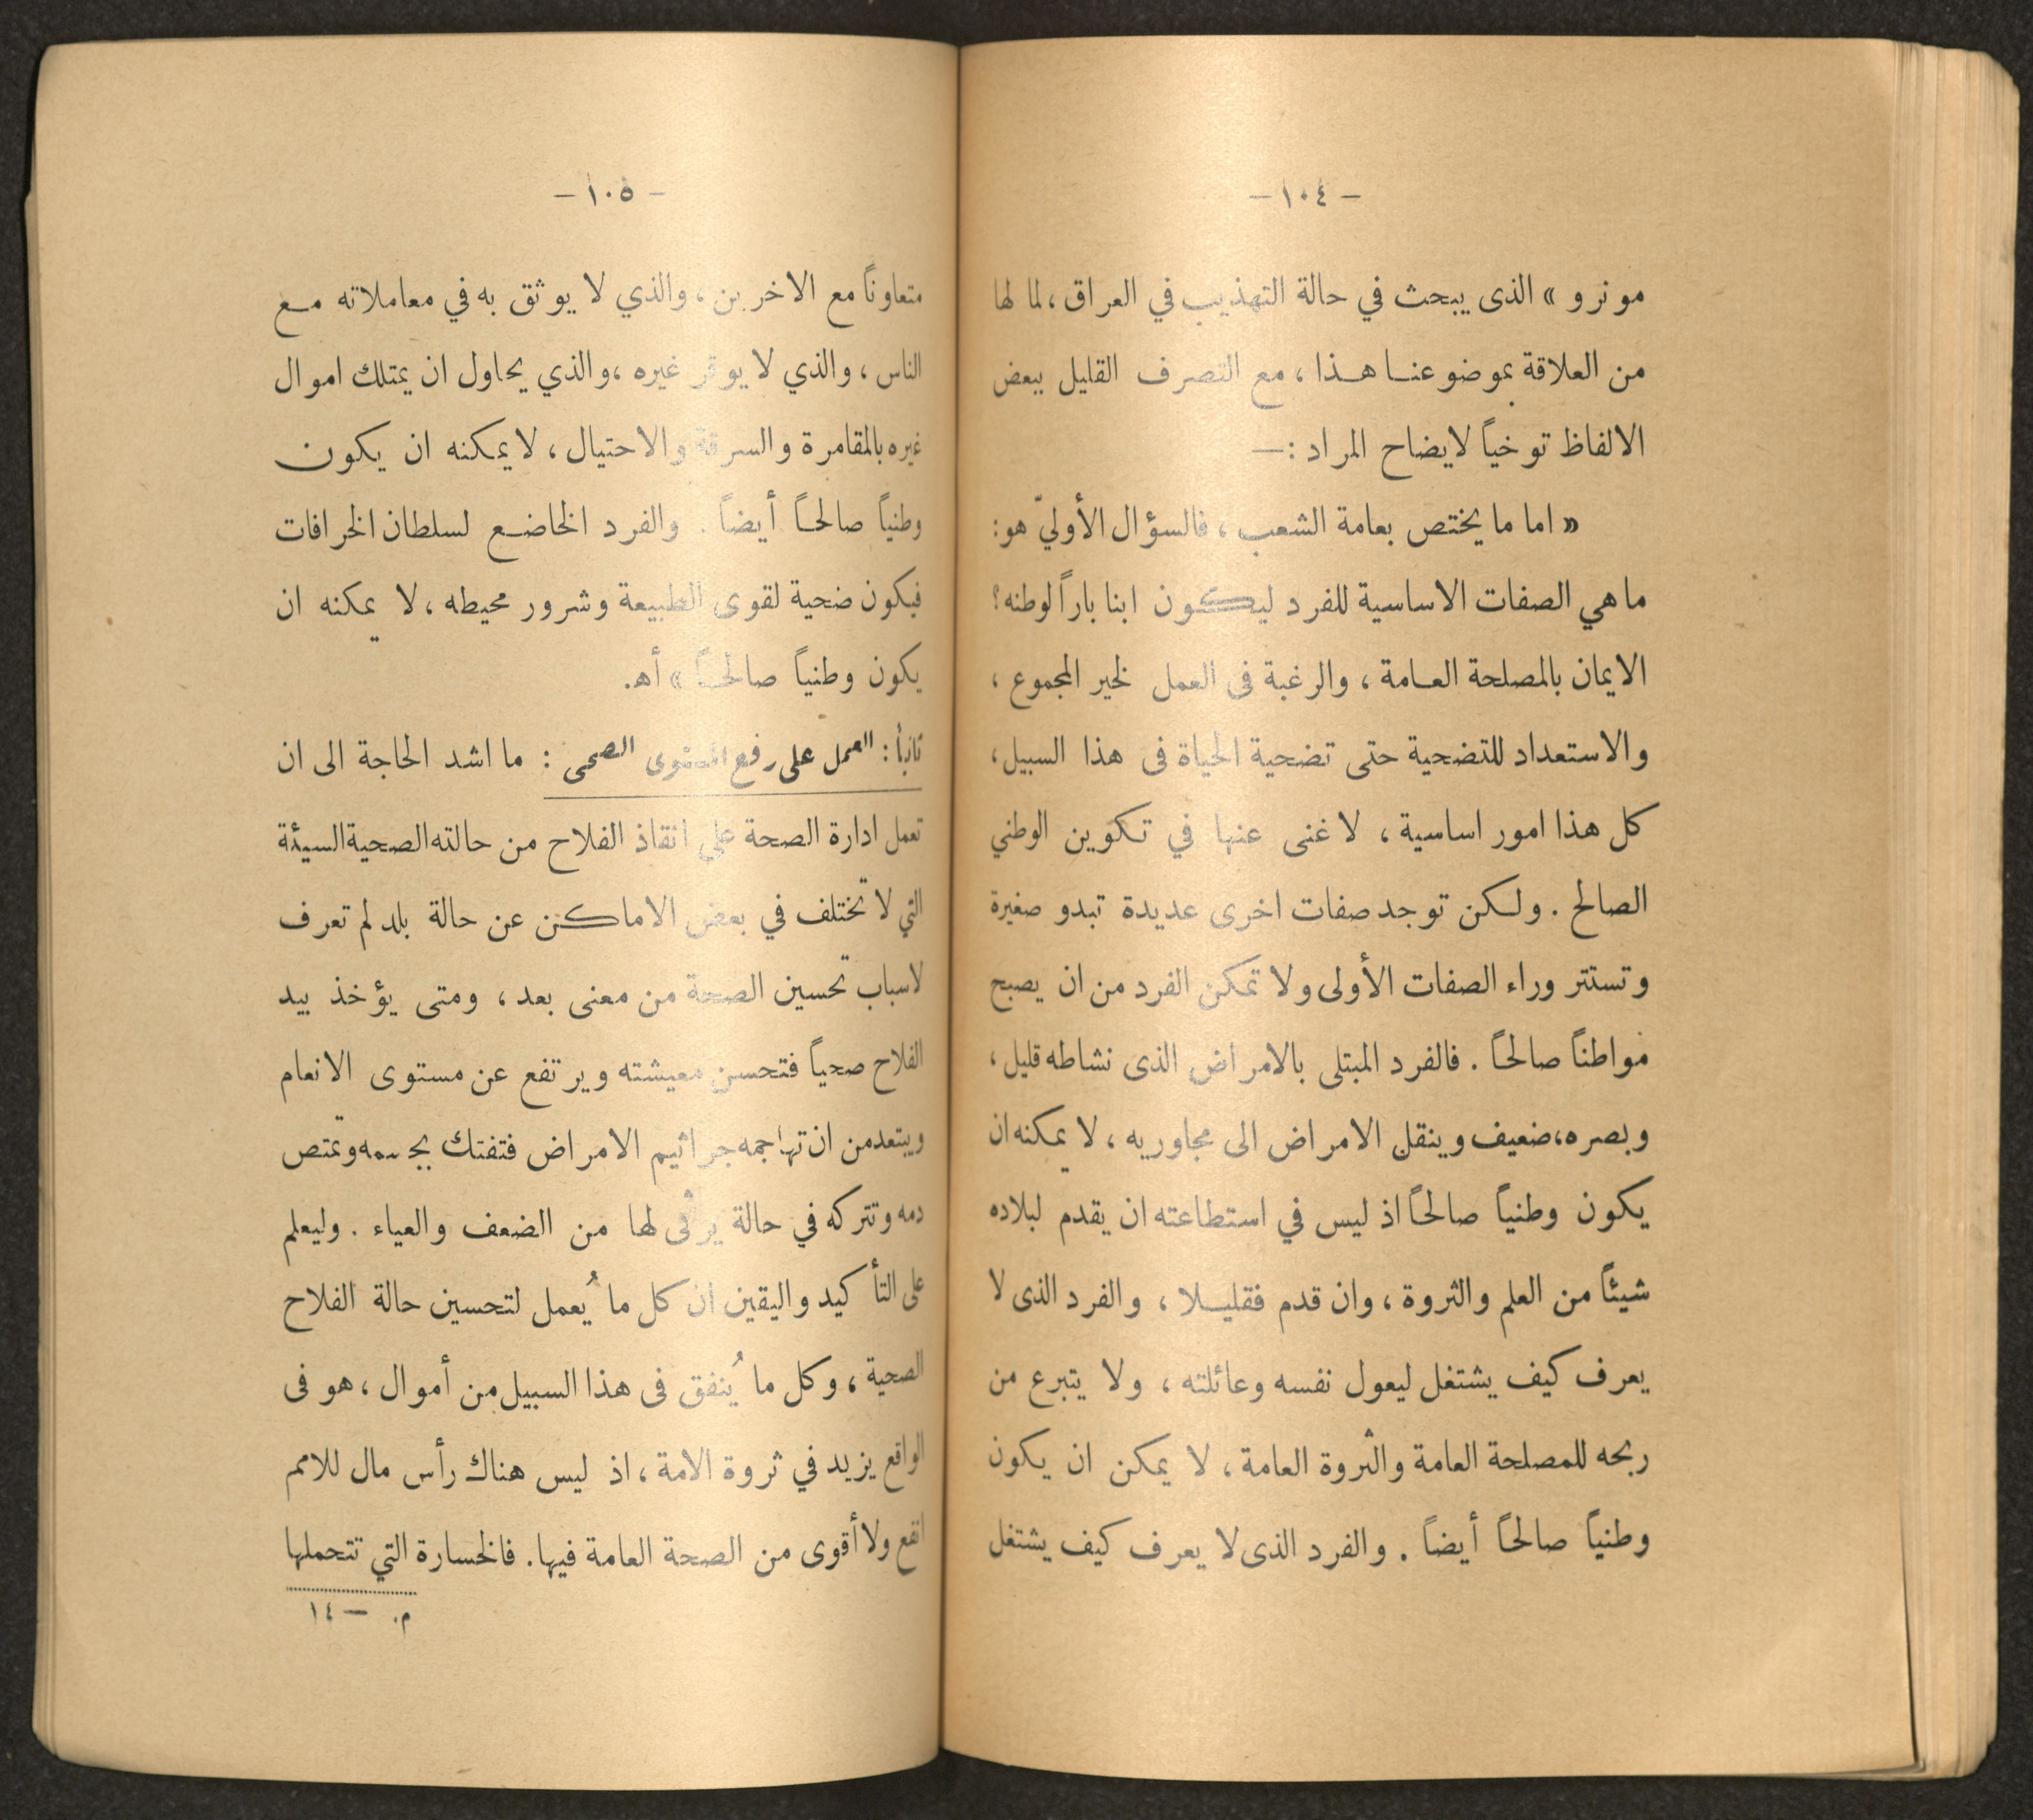 — ١٠٤ —
مونرو » الذى يبحث في حالة التهذيب في العراق ، لما لها
من العلاقة بموضوعنا هذا ، مع التصرف القليل ببعض
الالفاظ توخياً لايضاح المراد : —
« اما ما يختص بعامة الشعب ، فالسؤال الأوليّ هو :
ما هي الصفات الاساسية للفرد ليكون ابنا باراً لوطنه ؟
الايمان بالمصلحة العامة ، والرغبة فى العمل لخير المجموع ،
والاستعداد للتضحية حتى تضحية الحياة فى هذا السبيل ،
كل هذا امور اساسية ، لا غنى عنها في تكوين الوطني
الصالح . ولكن توجد صفات اخرى عديدة تبدو صغيرة
وتستتر وراء الصفات الأولى ولا تمكن الفرد من ان يصبح
مواطناً صالحاً . فالفرد المبتلى بالامراض الذى نشاطه قليل ،
وبصره ، ضعيف وينقل الامراض الى مجاوريه ، لا يمكنه ان
يكون وطنياً صالحاً اذ ليس في استطاعته ان يقدم لبلاده
شيئاً من العلم والثروة ، وان قدم فقليلا ، والفرد الذى لا
يعرف كيف يشتغل ليعول نفسه وعائلته ، ولا يتبرع من
ربحه للمصلحة العامة والثروة العامة ، لا يمكن ان يكون
وطنياً صالحاً أيضاً . والفرد الذى لا يعرف كيف يشتغل
— ١٠٥ —
متعاوناً مع الاخرين ، والذي لا يوثق به في معاملاته مع
الناس ، والذي لا يوقر غيره ، والذي يحاول ان يمتلك اموال
غيره بالمقامرة والسرقة والاحتيال ، لا يمكنه ان يكون
وطنياً صالحاً أيضاً . والفرد الخاضع لسلطان الخرافات
فيكون ضحية لقوى الطبيعة وشرور محيطه ، لا يمكنه ان
يكون وطنياً صالحاً » أهـ .
ثانياً : العمل على رفع المستوى الصحى : ما اشد الحاجة الى ان
تعمل ادارة الصحة على انقاذ الفلاح من حالته الصحية السيئة
التي لا تختلف في بعض الاماكن عن حالة بلد لم تعرف
لاسباب تحسين الصحة من معنى بعد ، ومتى يؤخذ بيد
الفلاح صحياً فتحسن معيشته ويرتفع عن مستوى الانعام
ويبتعد من ان تهاجمه جراثيم الامراض فتفتك بجسمه وتمتص
دمه وتتركه في حالة يرثى لها من الضعف والعياء . وليعلم
على التأكيد واليقين ان كل ما يُعمل لتحسين حالة الفلاح
الصحية ، وكل ما يُنفق فى هذا السبيل من أموال ، هو فى
الواقع يزيد في ثروة الامة ، اذ ليس هناك رأس مال للامم
انفع ولا أقوى من الصحة العامة فيها . فالخسارة التي تتحملها
م . — ١٤